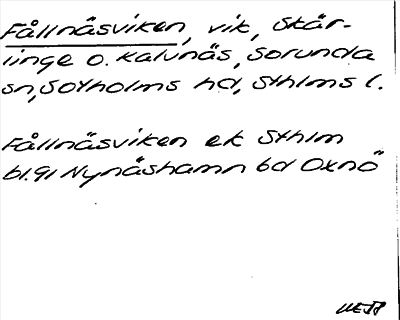 Fållnäsviken, vik, Skär-
linge o. Kalvnäs, Sorunda
sn, Sotholms hd, Sthlms l.
Fållnäsviken ek Sthlm
bl.91 Nynäshamn bd Oxnö